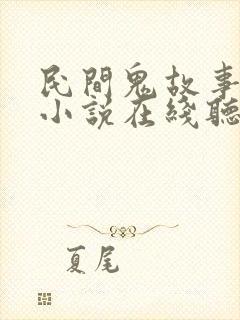 民間鬼故事
小説在綫聽
夏尾